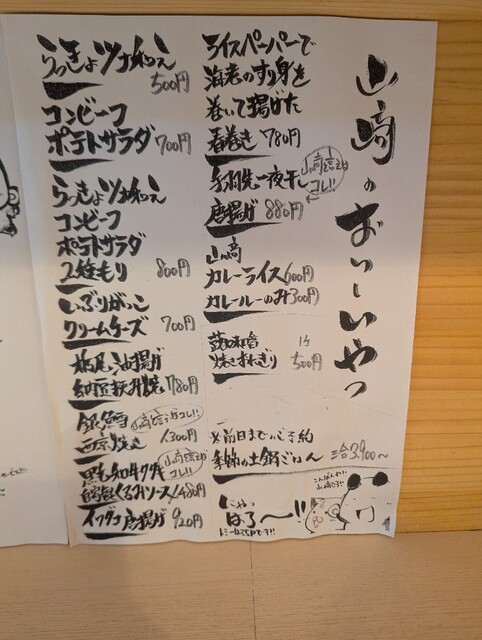 山﨑のおいしいやつ
ライスペーパーで
海老のすり身を
巻いて揚げた
春巻き 780円
手羽先一夜干し
唐揚げ 880円
山﨑といえばコレ!!
山﨑
カレーライス 600円
カレールーのみ 300円
蕗の味噌 1ケ
焼きおにぎり 500円
※前日までのご予約
季節の土鍋ごはん 三合3,900〜
こんばんわ!!
山崎です!!
らっきょツナ和え
500円
コンビーフ
ポテトサラダ 700円
らっきょツナ和え
コンビーフ
ポテトサラダ
2種もり 800円
いぶりがっこ
クリームチーズ 700円
栃尾油揚げ
納豆挟み焼 780円
銀鱈
西京焼き 1,300円
黒毛和牛タタキ
くるみソース 1,480円
イワダコ唐揚げ 920円